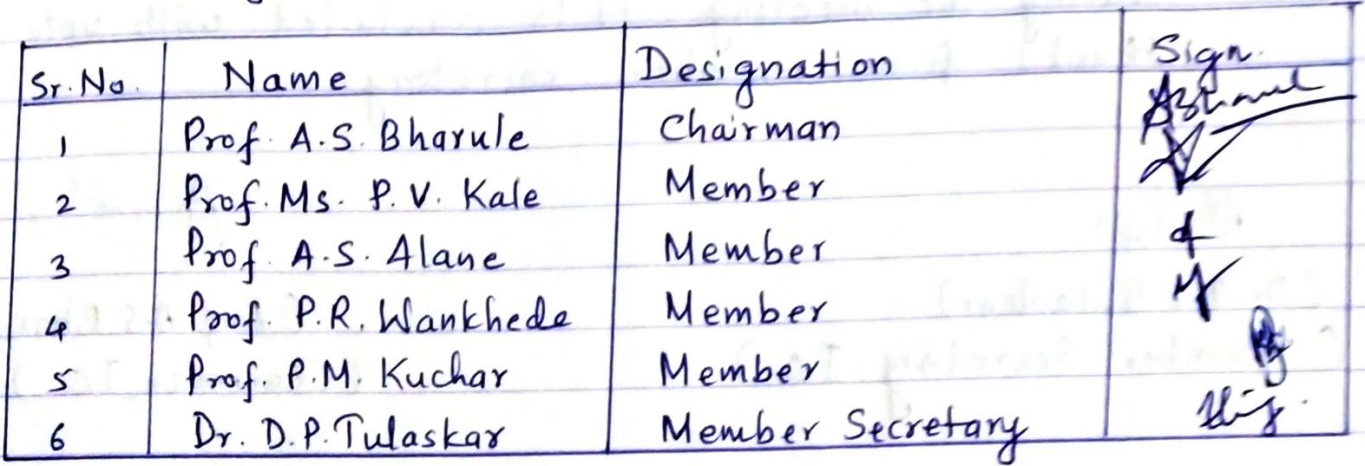 Sr. No. Name Designation Sign.
1 Prof. A.S. Bharule Chairman
2 Prof. Ms. P. V. Kale Member
3 Prof. A.S. Alane Member
4 Prof. P.R. Wankhede Member
5 Prof. P.M. Kuchar Member
6 Dr. D.P. Tulaskar Member Secretary